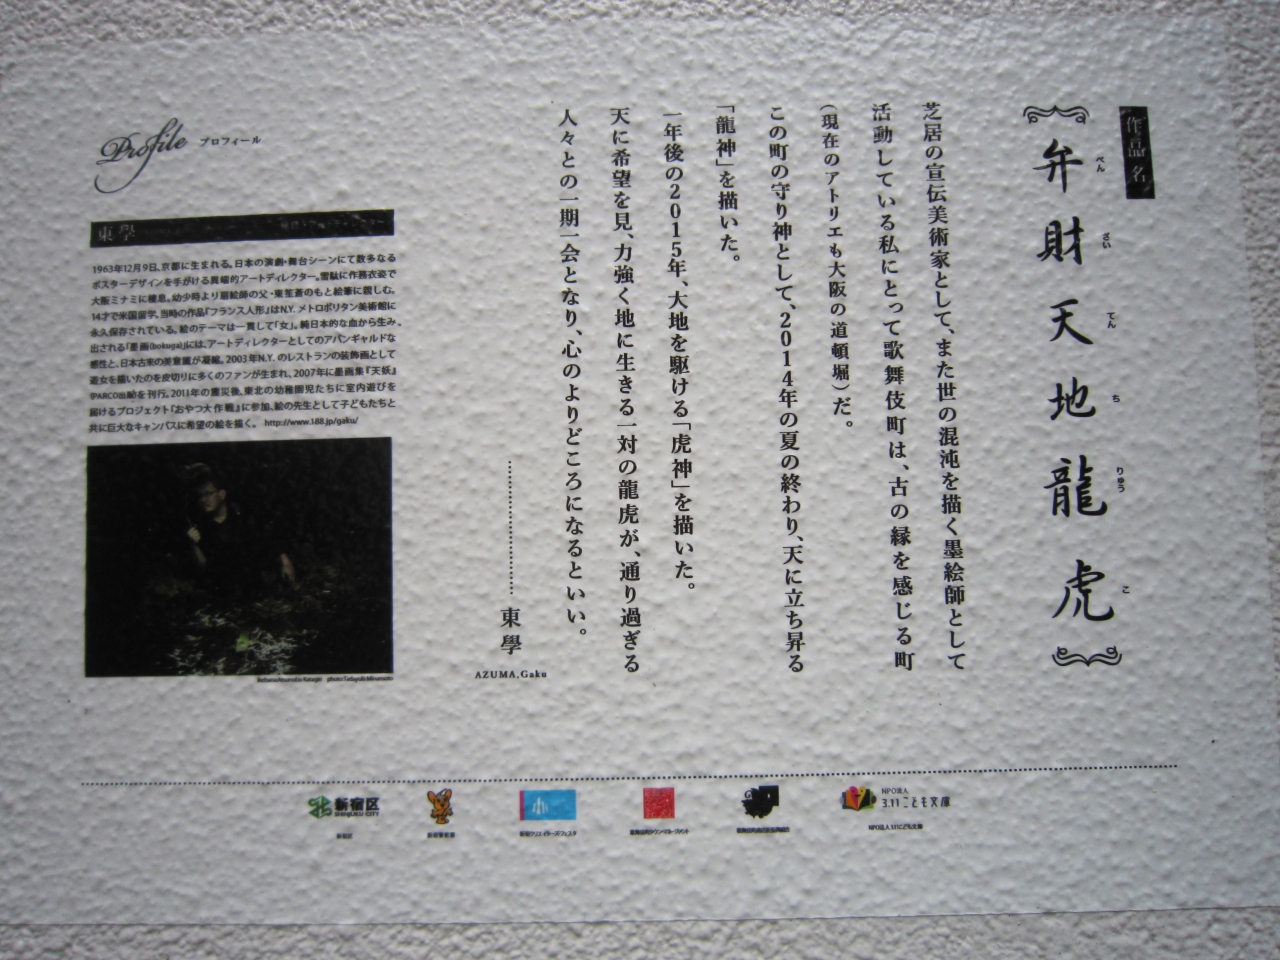 作品名
弁財天地龍虎
べん ざい てん ち りゅう こ
芝居の宣伝美術家として、また世の混沌を描く墨絵師として
活動している私にとって歌舞伎町は、古の縁を感じる町
(現在のアトリエも大阪の道頓堀)だ。
この町の守り神として、2014年の夏の終わり、天に立ち昇る
「龍神」を描いた。
一年後の2015年、大地を駆ける「虎神」を描いた。
天に希望を見、力強く地に生きる一対の龍虎が、通り過ぎる
人々との一期一会となり、心のよりどころになるといい。
東學
AZUMA,Gaku
Profile プロフィール
東學
1963年12月9日、京都に生まれる。日本の演劇・舞台シーンにて数多なる
ポスターデザインを手がける異端的アートディレクター。雪駄に作務衣姿で
大阪ミナミに棲息。幼少時より扇絵師の父・東笙蒼のもと絵筆に親しむ。
14才で米国留学。当時の作品『フランス人形』はN.Y.メトロポリタン美術館に
永久保存されている。絵のテーマは一貫して「女」。純日本的な血から生み
出される「墨画(bokuga)」には、アートディレクターとしてのアバンギャルドな
感性と、日本古来の美意識が凝縮。2003年N.Y.のレストランの装飾画として
遊女を描いたのを皮切りに多くのファンが生まれ、2007年に墨画集『天妖』
(PARCO出版)を刊行。2011年の震災後、東北の幼稚園児たちに室内遊びを
届けるプロジェクト「おやつ大作戦」に参加、絵の先生として子どもたちと
共に巨大なキャンバスに希望の絵を描く。 http://www.188.jp/gaku/
photo:Tadayuki Minamoto
新宿区
SHINJUKU CITY
新宿区
新宿警察署
新宿クリエイターズ・フェスタ
歌舞伎町タウン・マネージメント
NPO法人
3.11こども文庫
NPO法人3.11こども文庫